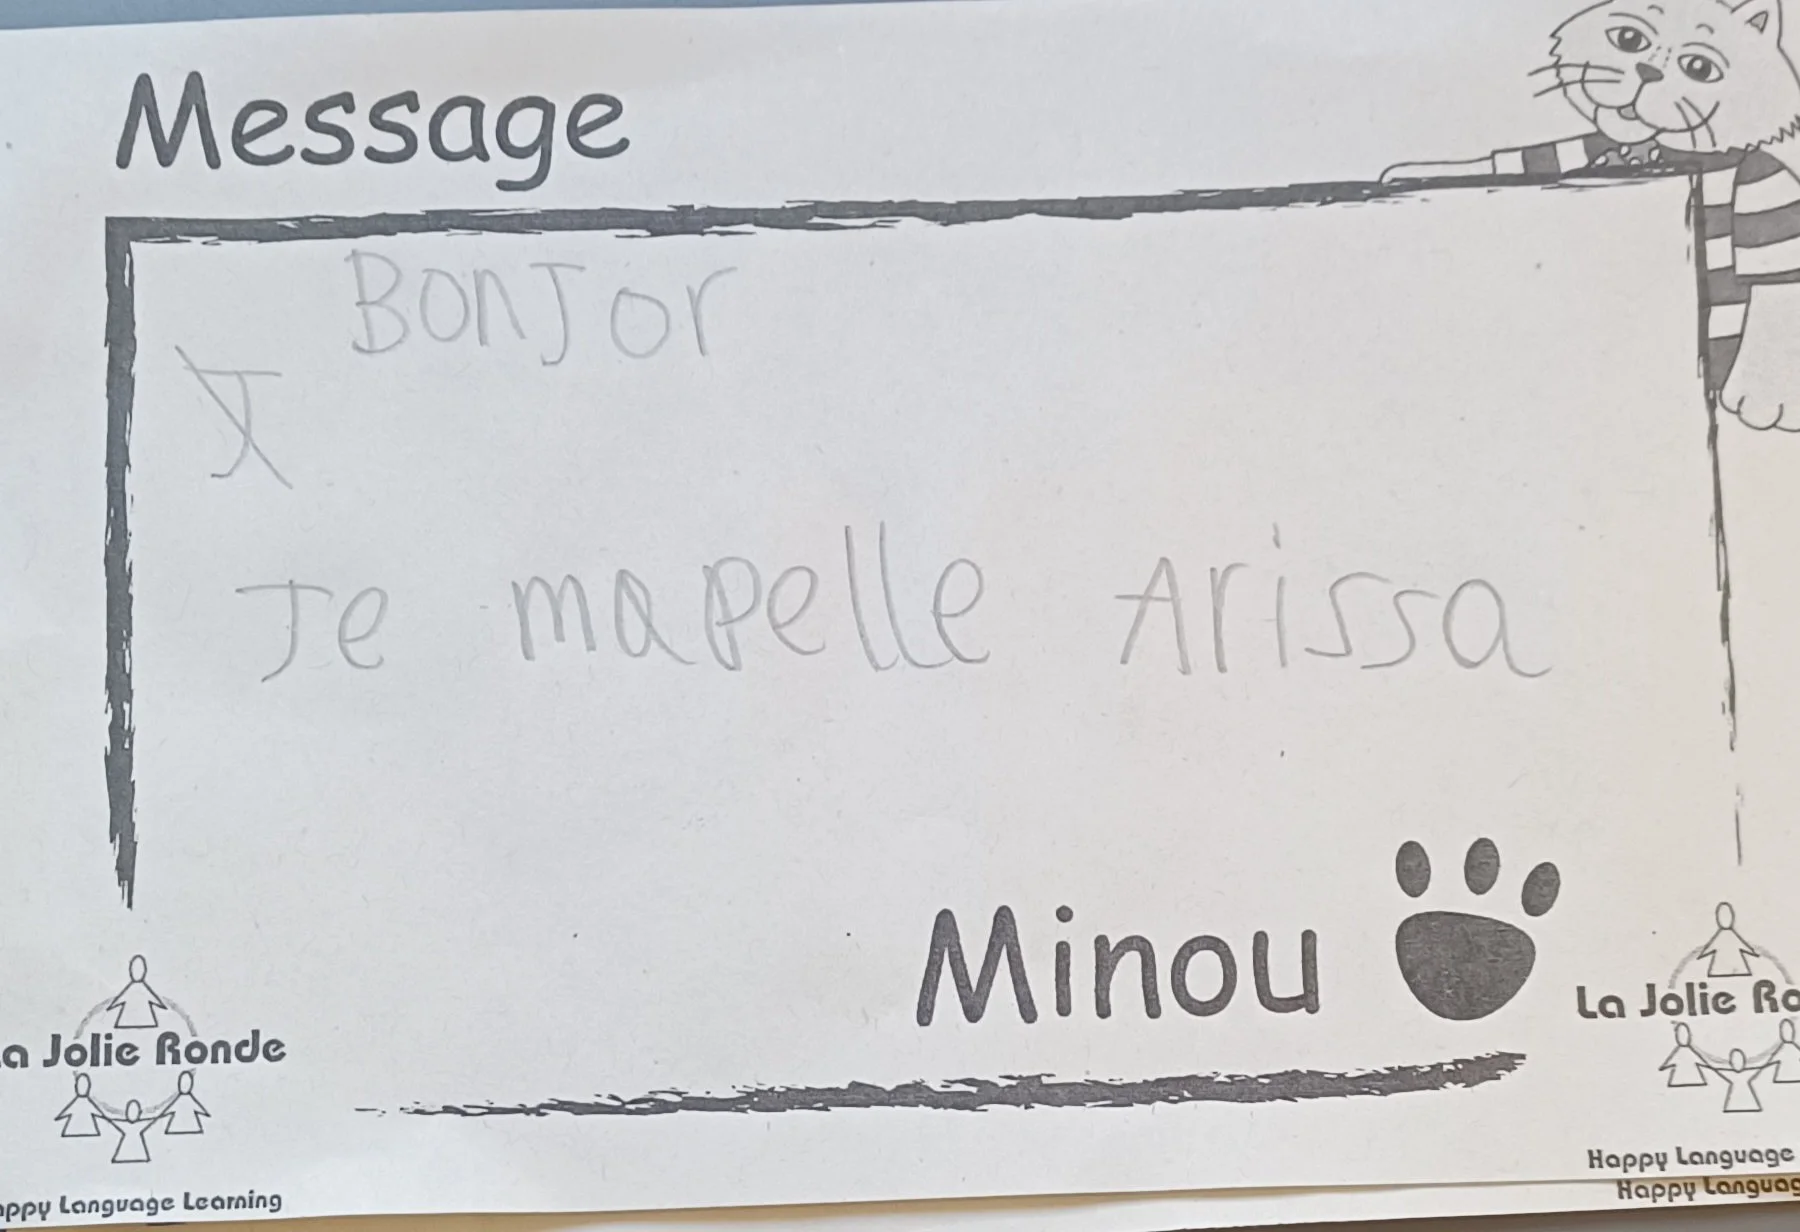 Message
BonJor
J
Je mapelle Arissa
Minou
a Jolie Ronde
La Jolie Ro
Happy Language
Happy Languag
appy Language Learning